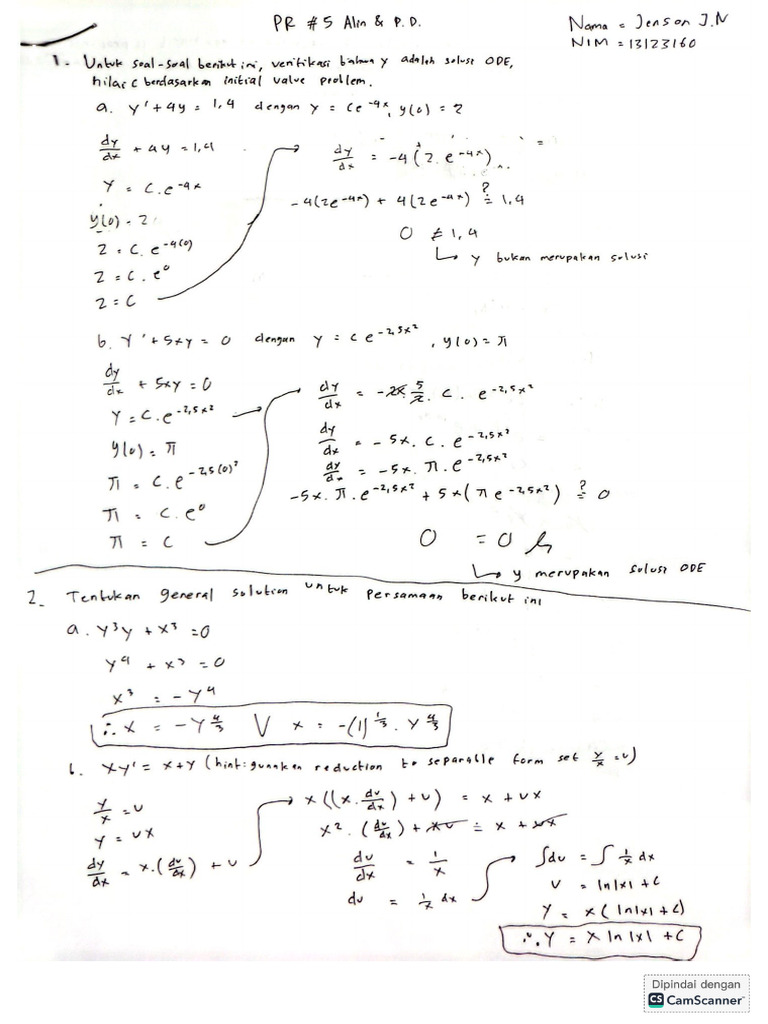 PR #5 Alin & P.D.
Nama = Jenson J.N
NIM = 13123160
1. Untuk soal-soal berikut ini, verifikasi bahwa y adalah solusi ODE,
nilai c berdasarkan initial value problem.
a. y' + 4y = 1,4 dengan y = ce^-4x, y(0) = 2
dy/dx + 4y = 1,4
y = c.e^-4x
y(0) = 2
2 = c.e^-4(0)
2 = c.e^0
2 = c
dy/dx = -4(2.e^-4x)
-4(2e^-4x) + 4(2e^-4x) ?= 1,4
0 ≠ 1,4
↳ y bukan merupakan solusi
b. y' + 5xy = 0 dengan y = ce^-2,5x², y(0) = π
dy/dx + 5xy = 0
y = c.e^-2,5x²
y(0) = π
π = c.e^-2,5(0)²
π = c.e^0
π = c
dy/dx = -2x 5/2 . c . e^-2,5x²
dy/dx = -5x. c. e^-2,5x²
dy/dx = -5x. π. e^-2,5x²
-5x. π. e^-2,5x² + 5x(πe^-2,5x²) ?= 0
0 = 0
↳ y merupakan solusi ODE
2. Tentukan general solution untuk persamaan berikut ini
a. y³y + x³ = 0
y⁴ + x³ = 0
x³ = -y⁴
∴ x = -y^4/3 V x = -(1)^1/3 . y^4/3
b. xy' = x+y (hint: gunakan reduction to separable form set y/x = u)
y/x = u
y = ux
dy/dx = x.(du/dx) + u
x((x.du/dx) + u) = x + ux
x². (du/dx) + xu = x + ux
du/dx = 1/x
du = 1/x dx
∫du = ∫ 1/x dx
u = ln|x| + c
y = x(ln|x| + c)
∴ y = x ln|x| + c
Dipindai dengan
CS CamScanner